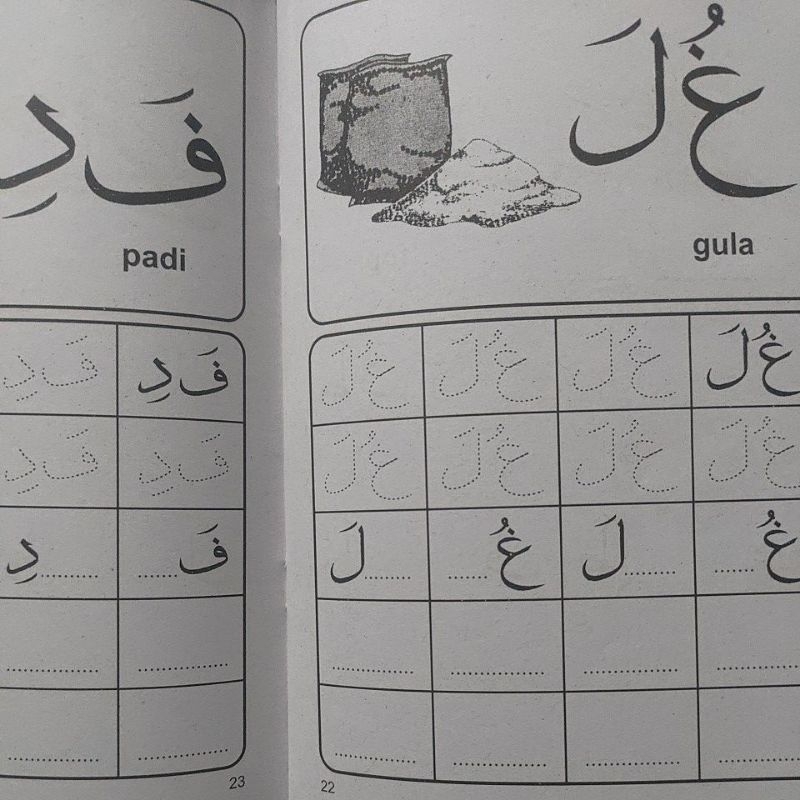 غُ لَ
gula
غُ لَ غُ لَ غُ لَ غُ لَ
غُ لَ غُ لَ غُ لَ غُ لَ
غُ ...... ........لَ غُ ...... ........لَ
22
فَ دِ
padi
فَ دِ فَ دِ
فَ دِ فَ دِ
فَ ...... ..........دِ
23